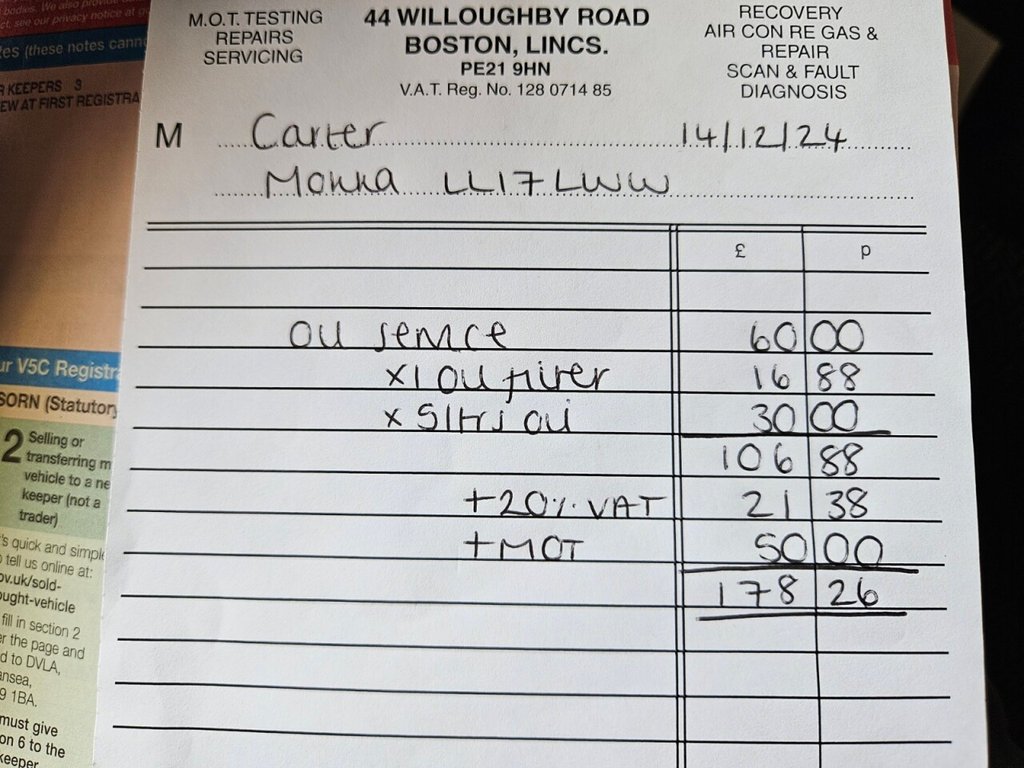 bodies. We also provide
ct: see our privacy notice at g
tes (these notes cann
R KEEPERS 3
EW AT FIRST REGISTRA
M.O.T. TESTING
REPAIRS
SERVICING
44 WILLOUGHBY ROAD
BOSTON, LINCS.
PE21 9HN
V.A.T. Reg. No. 128 0714 85
RECOVERY
AIR CON RE GAS &
REPAIR
SCAN & FAULT
DIAGNOSIS
M Carter 14/12/24
Mokka LL17LWW
£ p
Oil service 60 00
x1 oil filter 16 88
x5ltrs oil 30 00
106 88
+20% VAT 21 38
+MOT 50 00
178 26
ur V5C Registra
SORN (Statutory
2 Selling or
transferring m
vehicle to a ne
keeper (not a
trader)
's quick and simple
o tell us online at:
ov.uk/sold-
ought-vehicle
fill in section 2
er the page and
d to DVLA,
ansea,
9 1BA.
must give
on 6 to the
keeper